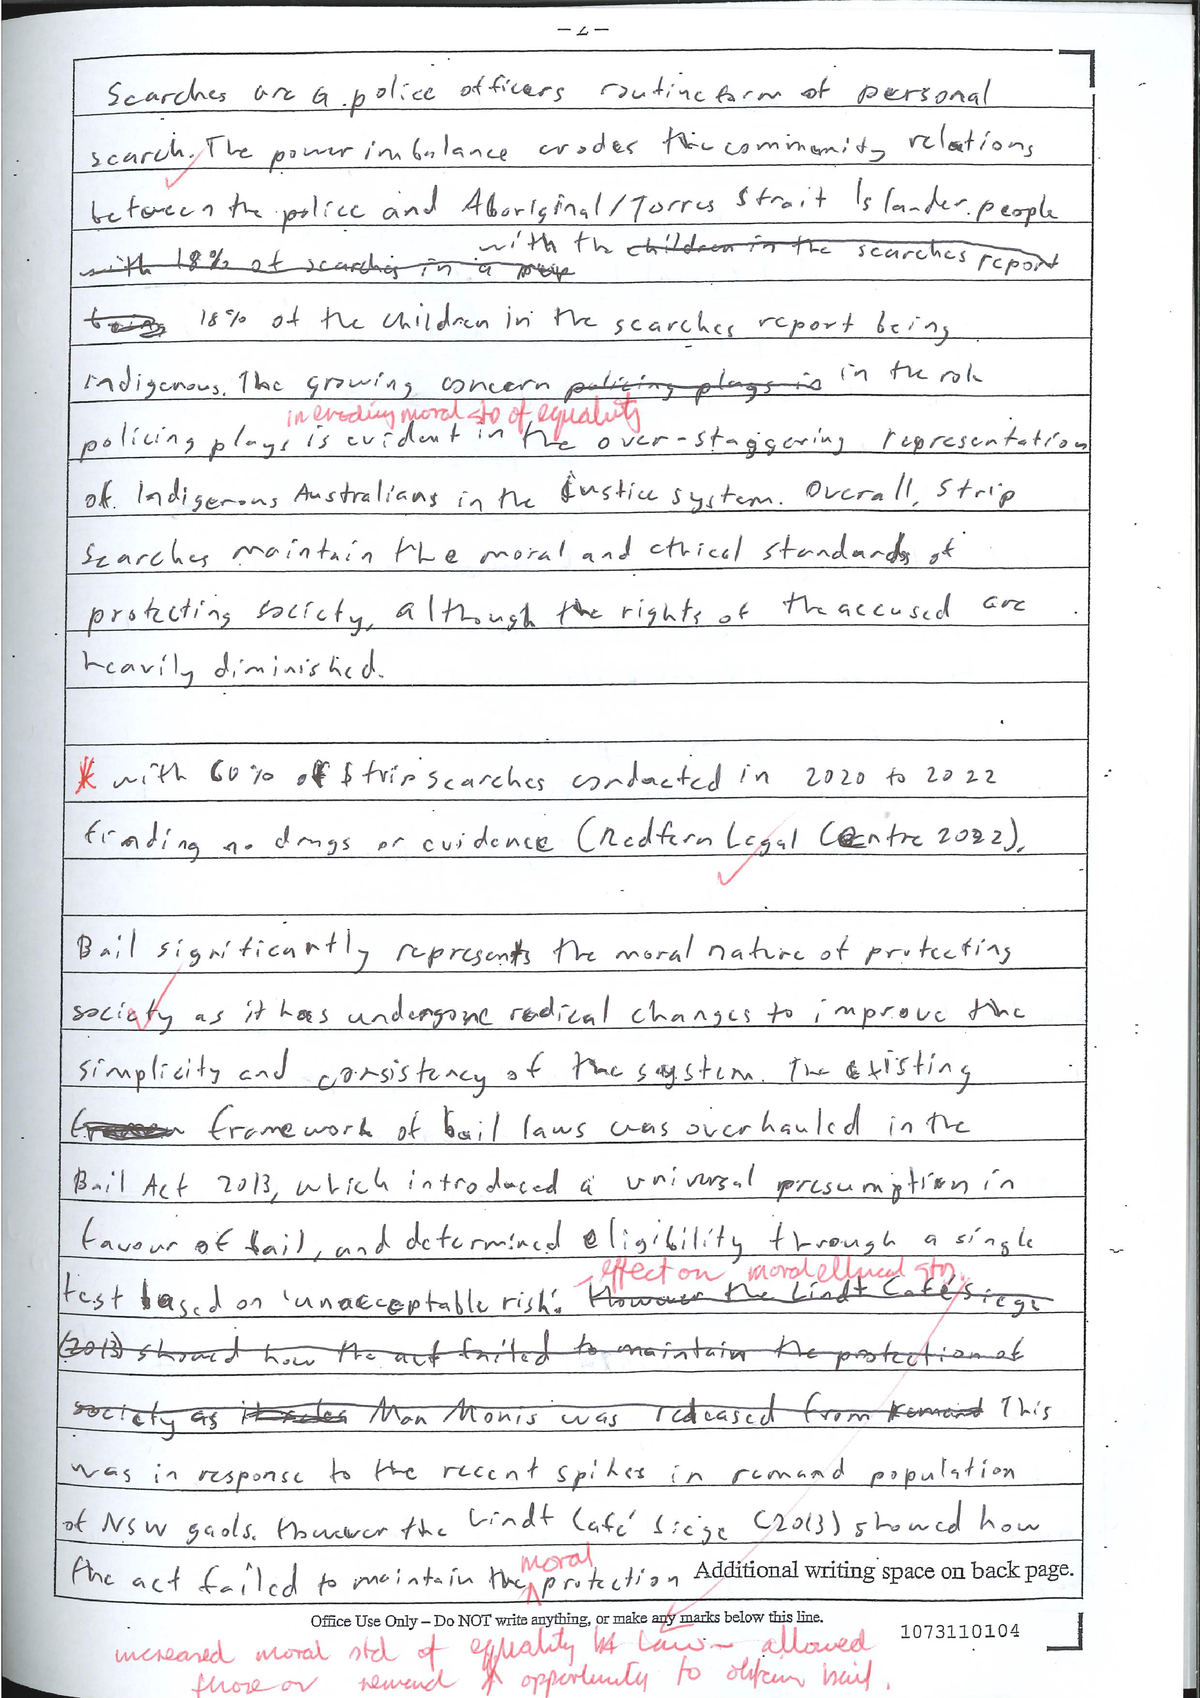 - 2 -
Searches are a police officers routine form of personal
search. The power imbalance erodes the community relations
between the police and Aboriginal/Torres Strait Islander people
with the children in the searches report
with 18% of searches in a
being 18% of the children in the searches report being
indigenous. The growing concern policing plays is in the role
in eroding moral std of equality
policing plays is evident in the over-staggering representation
of Indigenous Australians in the justice system. Overall, strip
searches maintain the moral and ethical standards of
protecting society, although the rights of the accused are
heavily diminished.
* with 60% of strip searches conducted in 2020 to 2022
finding no drugs or evidence (Redfern Legal Centre 2022).
Bail significantly represents the moral nature of protecting
society as it has undergone radical changes to improve the
simplicity and consistency of the system. The existing
framework of bail laws was overhauled in the
Bail Act 2013, which introduced a universal presumption in
favour of bail, and determined eligibility through a single
effect on moral ethical std.
test based on 'unacceptable risk'. However the Lindt Café Siege
(2013) showed how the act failed to maintain the protection of
society as Man Monis was released from remand This
was in response to the recent spikes in remand population
of NSW gaols. However the Lindt Café Siege (2013) showed how
moral
the act failed to maintain the protection Additional writing space on back page.
Office Use Only – Do NOT write anything, or make any marks below this line.
1073110104
increased moral std of equality b4 Law – allowed
those on remand opportunity to obtain bail.